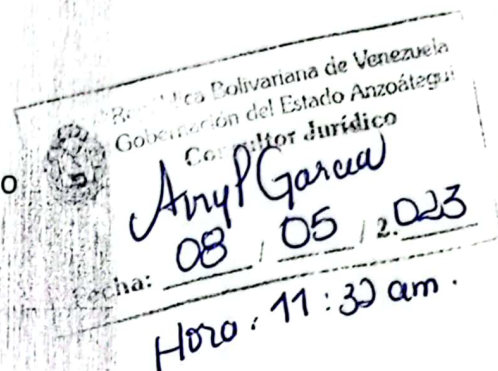 República Bolivariana de Venezuela
Gobernación del Estado Anzoátegui
Consultor Jurídico
o
García
Fecha: 08 / 05 / 2.023
Hora: 11:30 am.